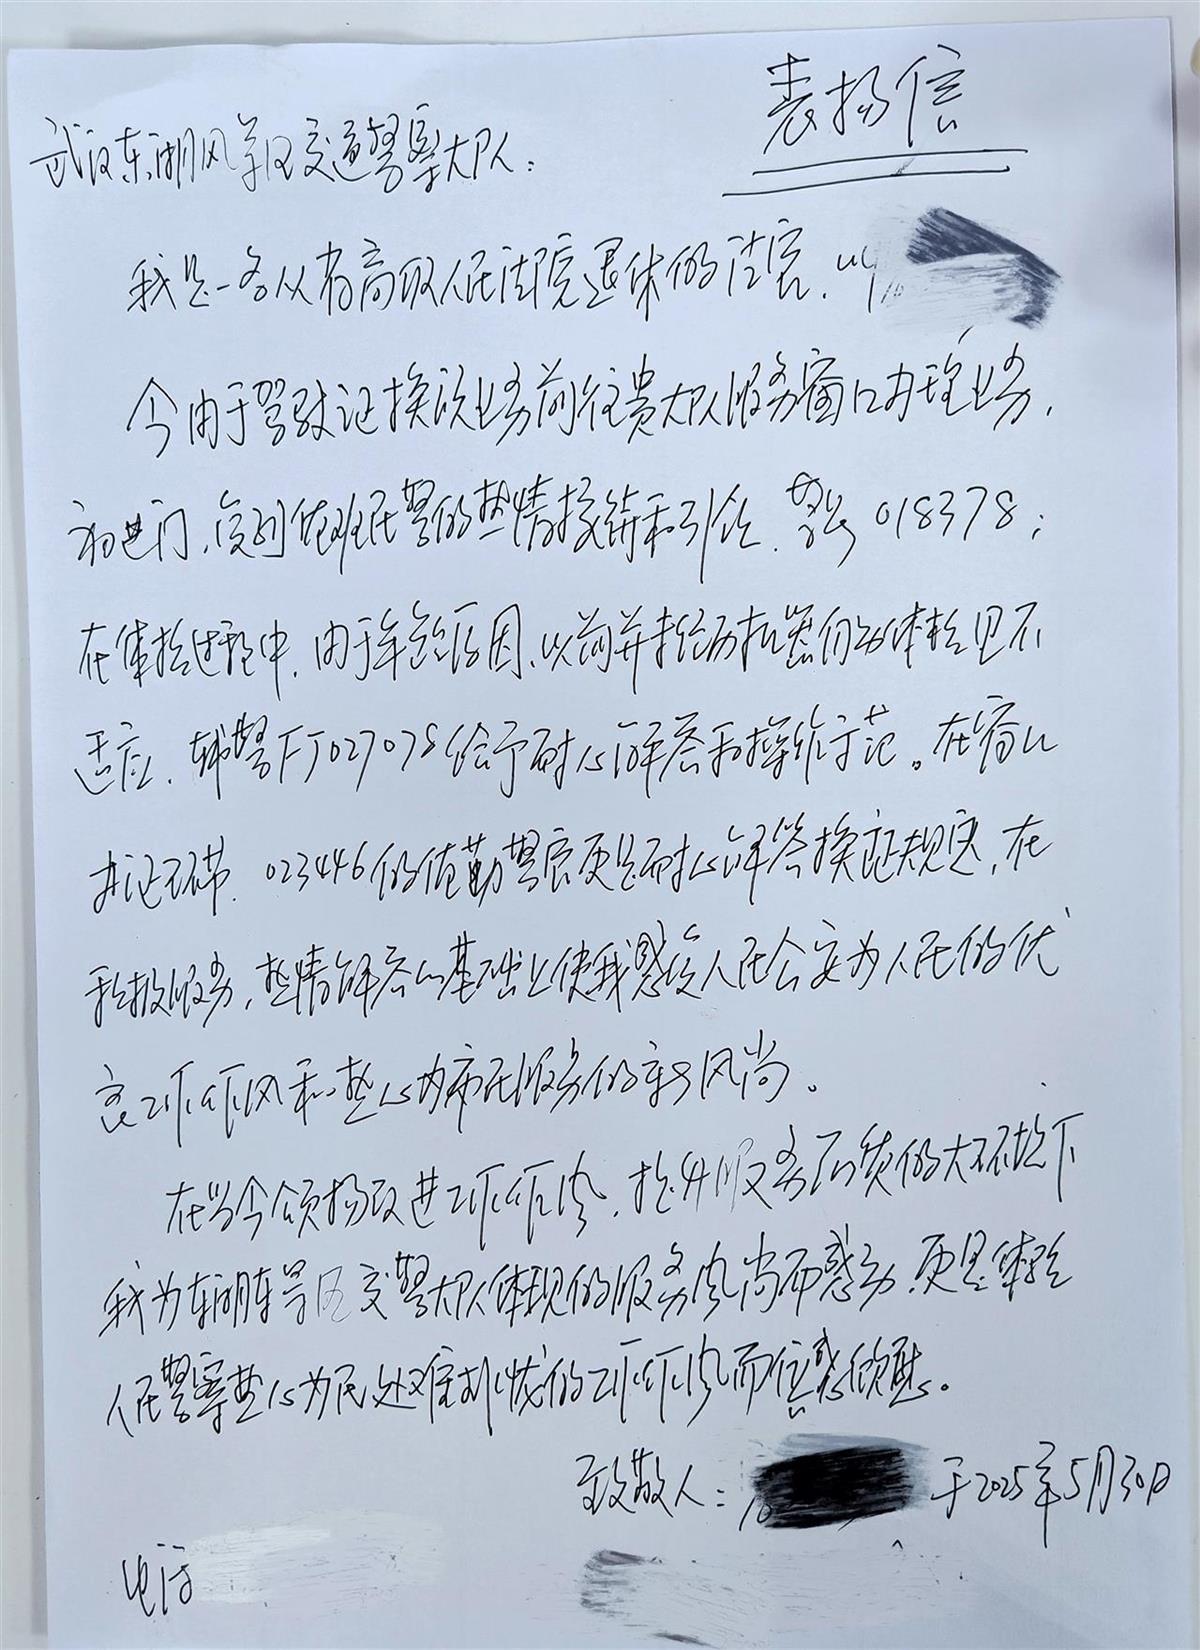 表扬信
武汉东湖风景区交通警察大队：
我是一名从省高级人民法院退休的法官，叫
今由于驾驶证换领业务前往贵大队服务窗口办理业务，
初进门，受到值班民警的热情接待和引领，警号018378；
在体检过程中，由于年龄原因，以前并未经历机器自动体检且不
适应，辅警FJ027078给予耐心解答和操作示范。在窗口
办证环节，023446的值勤警官更是耐心解答换证规定，在
积极服务，热情解答的基础上使我感受人民公安为人民的优
良工作作风和热心为市民服务的新风尚。
在当今颂扬改进工作作风，提升服务品质的大环境下
我为东湖东景区交警大队体现的服务风尚而感动，更是体验
人民警察热心为民处难排忧的工作作风而倍感倾慰。
致敬人： 于2025年5月30日
电话